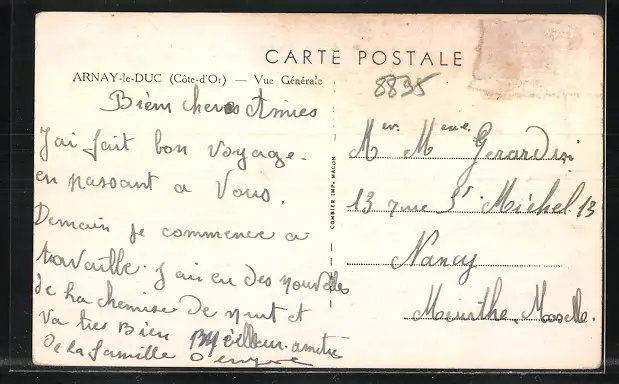 CARTE POSTALE
ARNAY-le-DUC (Côte-d'Or) — Vue Générale
8835
Bièm cheres Amies
J'ai fait bon voyage.
en passant a Vous.
Demain je commence a
travaille. J'ai eu des nouvelles
de la chemise de nuit et
va tres Bien Meilleur
de la famille
COMBIER IMP. MACON
Mer. Meme. Gerardin
13 rue St Michel 13
Nancy
Meurthe, Moselle.